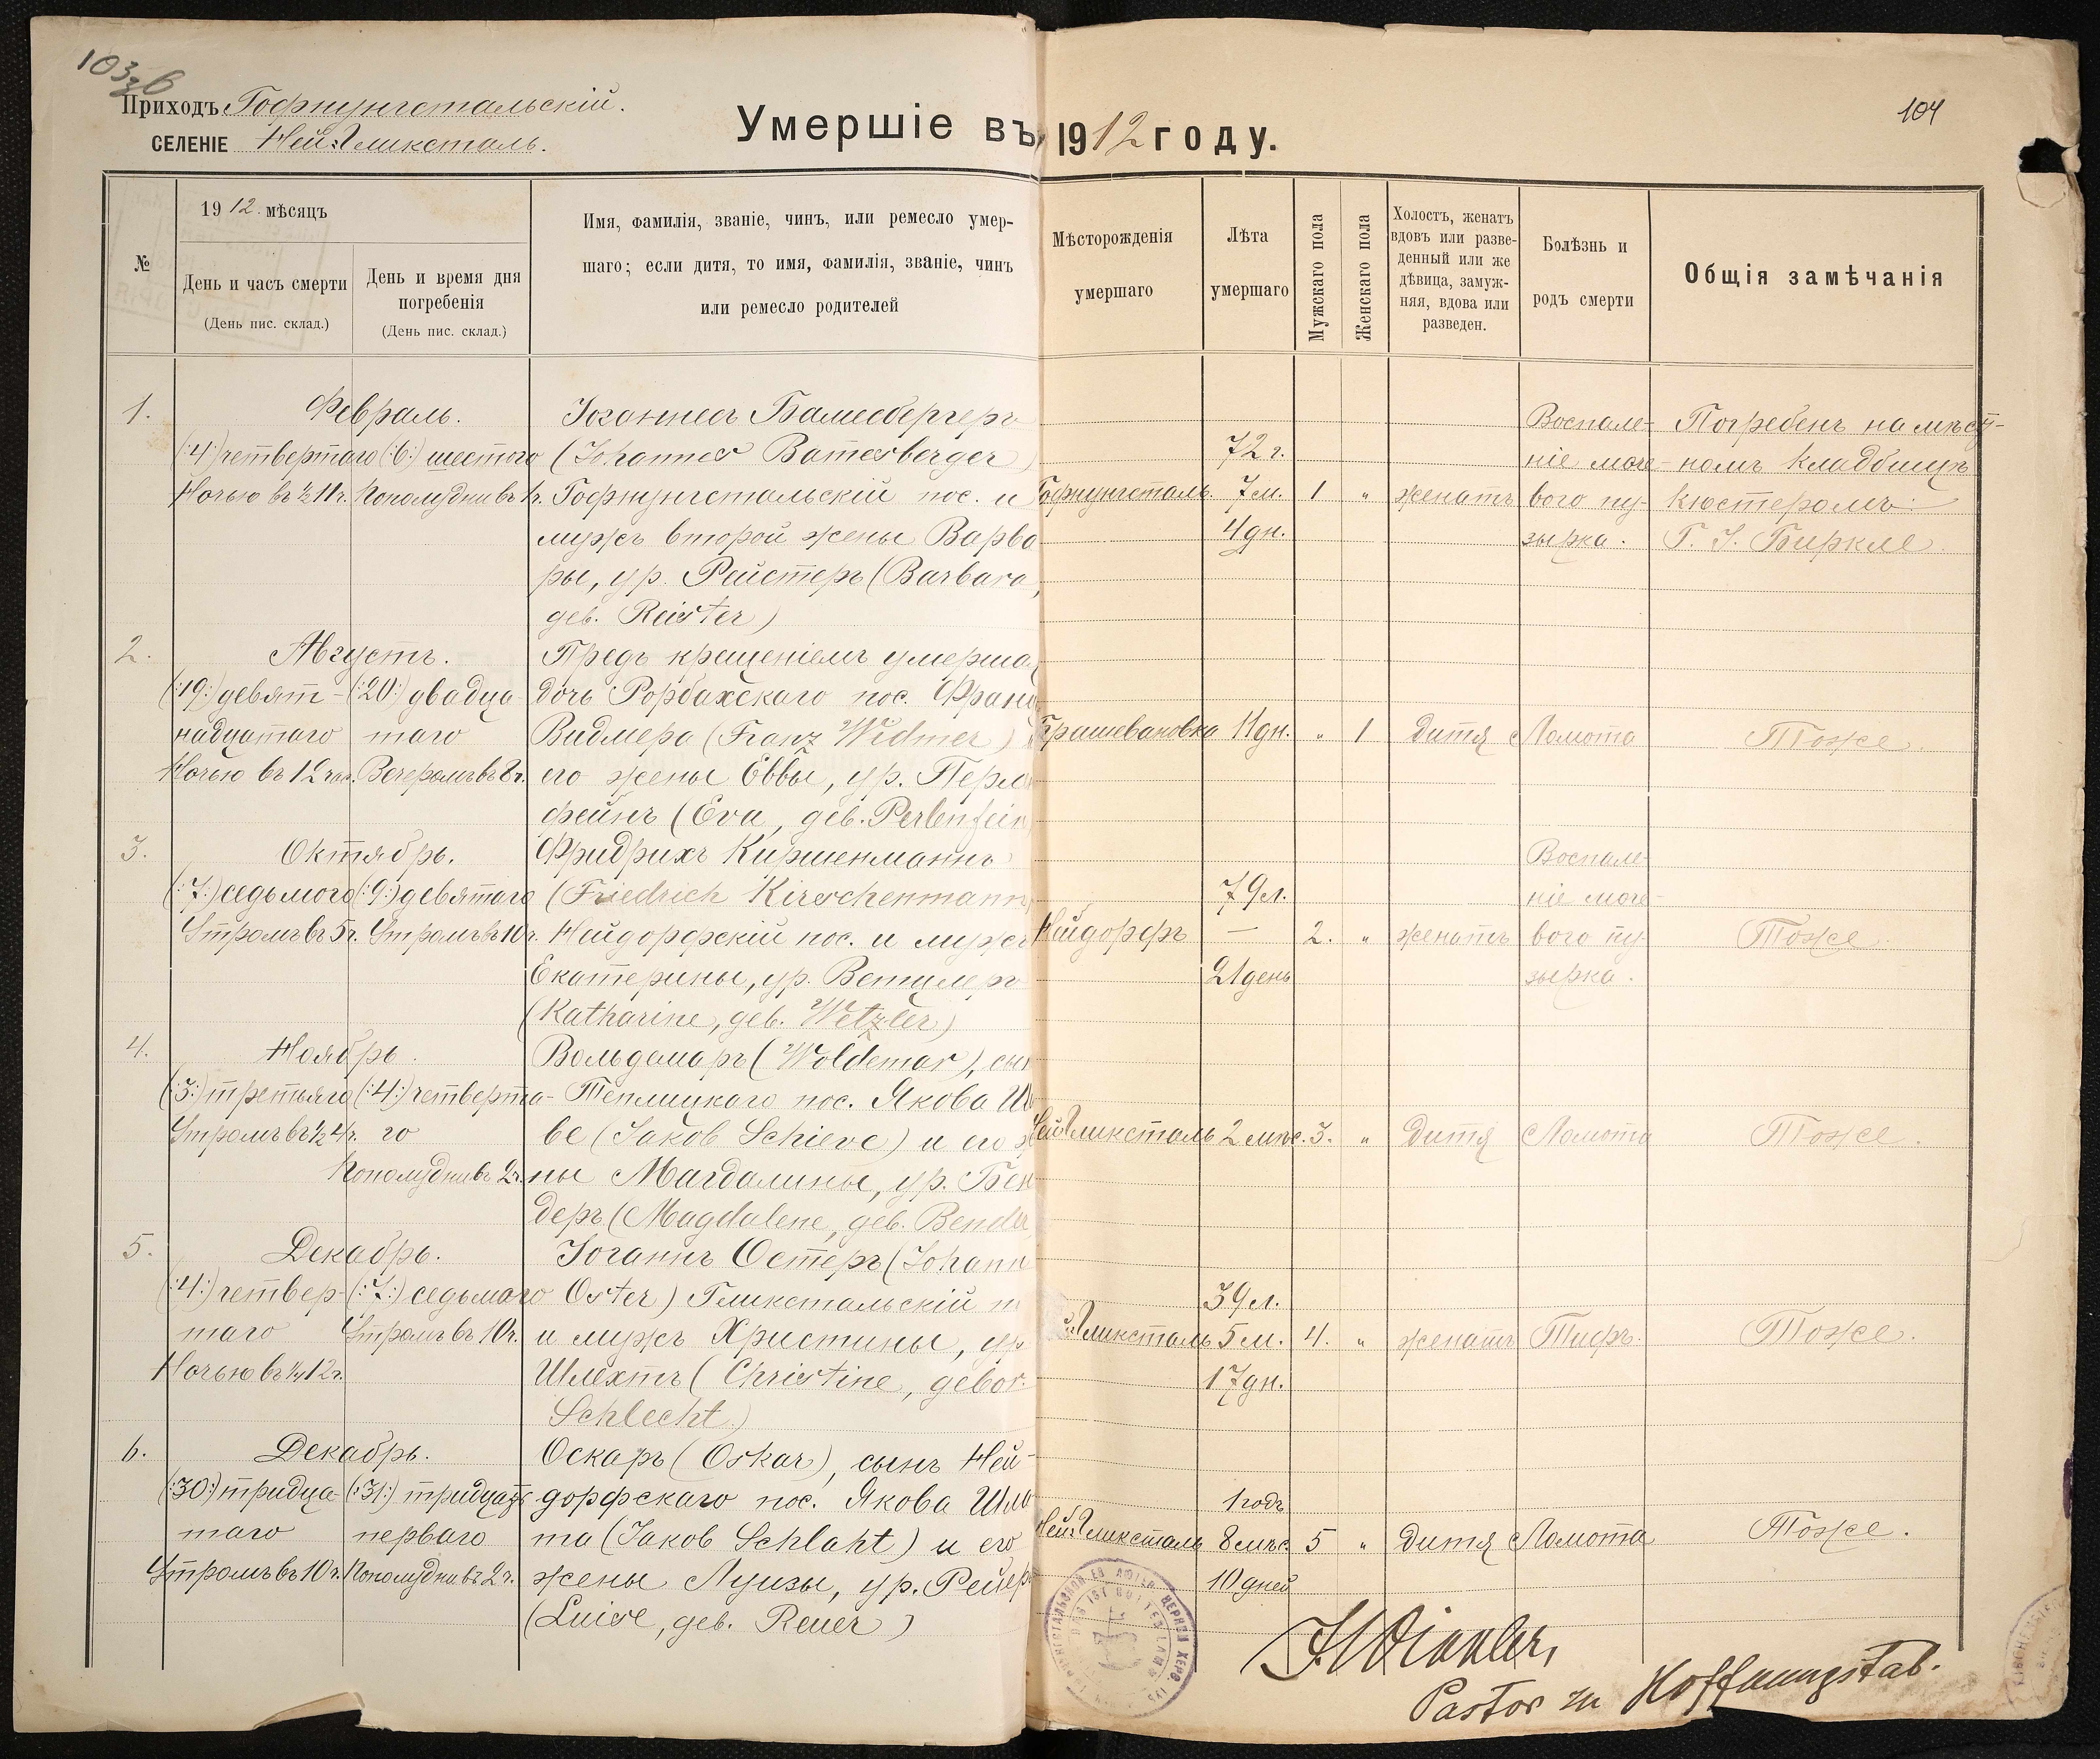 103 в
104
Приходъ Гофнунгстальскій.
СЕЛЕНІЕ Ней-Гликсталь.
Умершіе въ 1912 году.
№
1912. мѣсяцъ
День и часъ смерти
(День пис. склад.)
День и время дня
погребенія
(День пис. склад.)
Имя, фамилія, званіе, чинъ, или ремесло умер-
шаго; если дитя, то имя, фамилія, званіе, чинъ
или ремесло родителей
Мѣсторожденія
умершаго
Лѣта
умершаго
Мужскаго пола
Женскаго пола
Холостъ, женатъ
вдовъ или разве-
денный или же
дѣвица, замуж-
няя, вдова или
разведен.
Болѣзнь и
родъ смерти
Общія замѣчанія
1.
Февраль.
(:4:) четвертаго (:6:) шестого
Ночью въ ½ 11 ч. Пополудни въ 1 ч.
Іоганнесъ Бамесбергеръ
(Johannes Bamesberger)
Гофнунгстальскій пос. и
мужъ второй жены Варва
ры, ур. Рейстеръ (Barbara,
geb. Reister)
Гофнунгсталь.
72 г.
7 м.
4 дн.
1 " женатъ
Воспале-
ніе моче-
вого пу-
зырка.
Погребенъ на мѣст-
номъ кладбищѣ
кюстеромъ:
Г. І. Биркле
2.
Августъ.
(:19:) девят- (:20:) двадца-
надцатаго таго
Ночью въ 12 час. Вечеромъ въ 8 ч.
Предъ крещеніемъ умерша
дочь Рорбахскаго пос. Фран
Видмера (Franz Widmer)
его жены Еввы, ур. Перл
фейнъ (Eva, geb. Perlenfein
11 дн. " 1 дитя Ломота
Тоже.
3.
Октябрь.
(:7:) седьмого (:9:) девятаго
Утромъ въ 5 ч. Утромъ въ 10 ч.
Фридрихъ Киршенманнъ
(Friedrich Kirschenmann)
Нейдорфскій пос. и мужъ
Екатерины, ур. Ветцлеръ
(Katharine, geb. Wetzler)
Нейдорфъ
79 л.
—
21 день
2. " женатъ
Воспале-
ніе моче-
вого пу-
зырка.
Тоже.
4.
Ноябрь.
(:3:) третьяго (:4:) четверта-
Утромъ въ ½ 4 ч. го
Пополудни въ 2 ч.
Вольдемаръ (Woldemar), сын
Теплицкаго пос. Якова Ш
ве (Jakob Schieve) и его ж
ны Магдалины, ур. Бен
деръ (Magdalene, geb. Bender
Ней-Гликсталь 2 мѣс. 3. " дитя Ломота
Тоже.
5.
Декабрь.
(:4:) четвер- (:7:) седьмаго
таго Утромъ въ 10 ч.
Ночью въ ¼ 12 ч.
Іоганнъ Остеръ (Johann
Oster) Гликстальскій п
и мужъ Христины, ур
Шлехтъ (Christine, gebor.
Schlecht)
Гликсталь
39 л.
5 м.
17 дн.
4. " женатъ Тифъ.
Тоже.
6.
Декабрь.
(:30:) тридца- (:31:) тридцать
таго перваго
Утромъ въ 10 ч. Пополудни въ 2 ч.
Оскаръ (Oskar), сынъ Ней-
дорфскаго пос. Якова Шла
та (Jakob Schlaht) и его
жены Луизы, ур. Рейеръ
(Luise, geb. Reuer)
Ней-Гликсталь
1 годъ
8 мѣс.
10 дней
5 " дитя Ломота
Тоже.
J. Winkler,
Pastor zu Hoffnungstal.